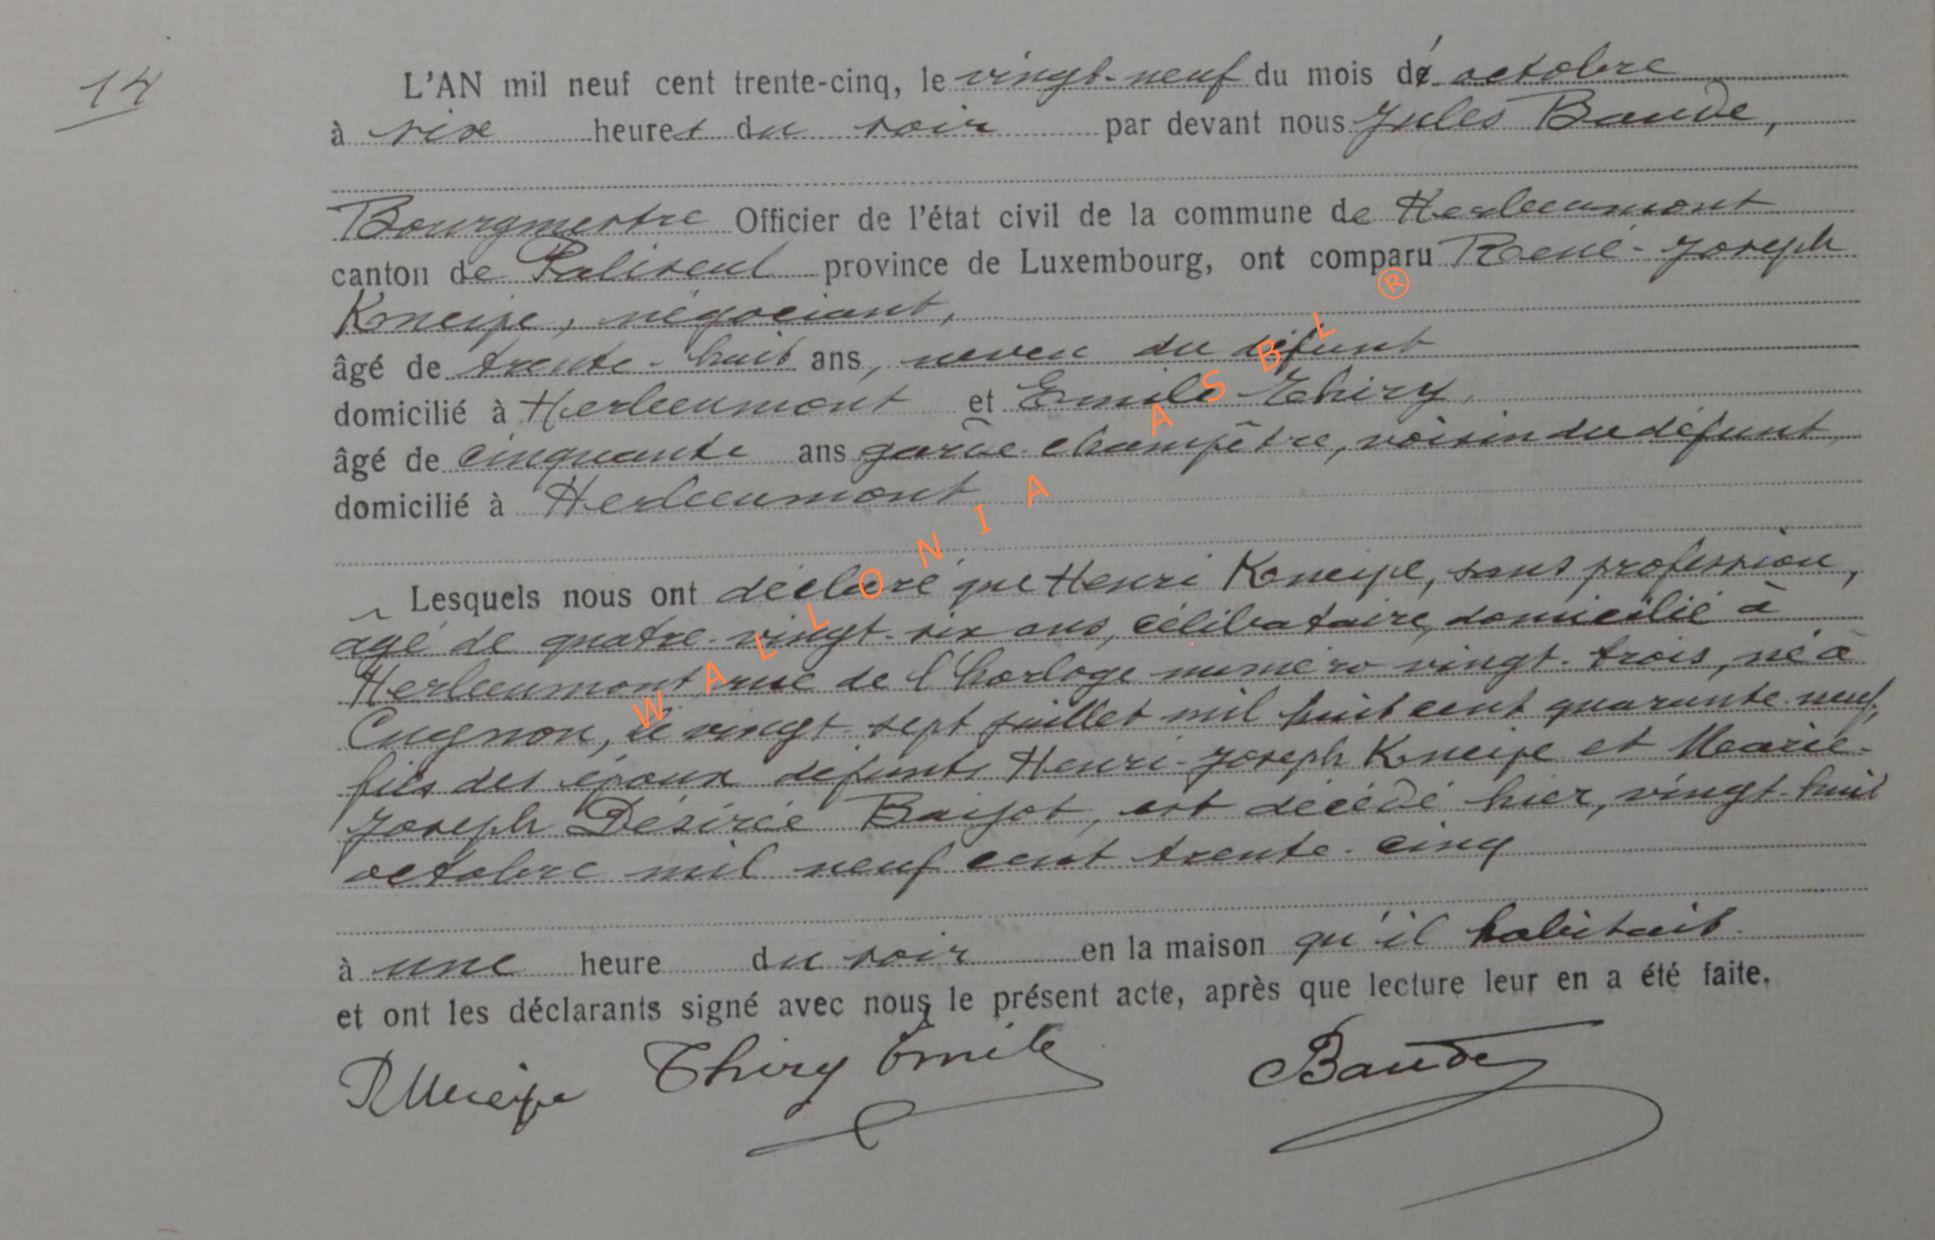 14
L'AN mil neuf cent trente-cinq, le vingt-neuf du mois d'octobre
à six heures du soir par devant nous Jules Baude,
Bourgmestre Officier de l'état civil de la commune de Herbeumont
canton de Paliseul province de Luxembourg, ont comparu René-Joseph
Kneipe, négociant,
âgé de trente-huit ans, neveu du défunt
domicilié à Herbeumont et Emile Thiry,
âgé de cinquante ans garde-champêtre, voisin du défunt
domicilié à Herbeumont
Lesquels nous ont déclaré que Henri Kneipe, sans profession,
âgé de quatre-vingt-six ans, célibataire, domicilié à
Herbeumont, rue de l'horloge numéro vingt-trois, né à
Cugnon, le vingt-sept juillet mil huit cent quarante-neuf,
fils des époux défunts Henri-Joseph Kneipe et Marie-
Joseph Désirée Baijot, est décédé hier, vingt-huit
octobre mil neuf cent trente-cinq
à une heure du soir en la maison qu'il habitait
et ont les déclarants signé avec nous le présent acte, après que lecture leur en a été faite.
R Kneipe Thiry Emile Baude
WALLONIA ASBL ®